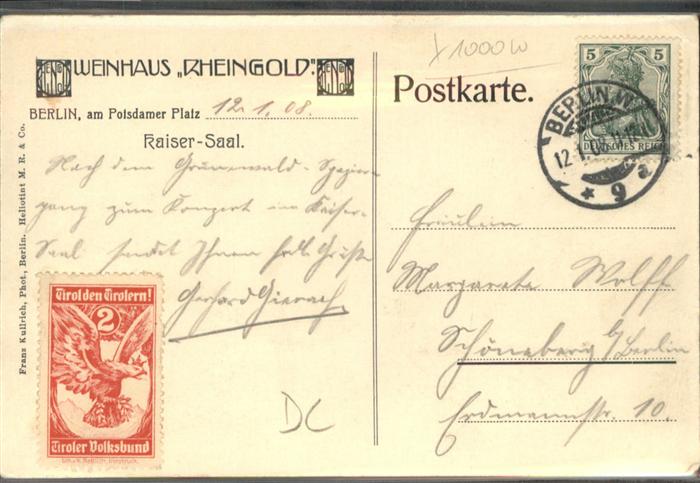 WEINHAUS „RHEINGOLD".
BERLIN, am Potsdamer Platz 12.1.08.
Kaiser-Saal.
Nach dem Grunewald-Spazier-
gang zum Konzert im Kaiser-
Saal sendet Ihnen frdl. Grüße
Gerhard Gierach
Franz Kullrich, Phot., Berlin. Heliotint M. R. & Co.
Tirol den Tirolern!
2
Tiroler Volksbund
DC
x1000w
Postkarte.
5 5
DEUTSCHES REICH
BERLIN.W.
12.1.08.11-12
* 9 a
Fräulein
Margarete Wolff
Schöneberg b/Berlin
Erdmannstr. 10.